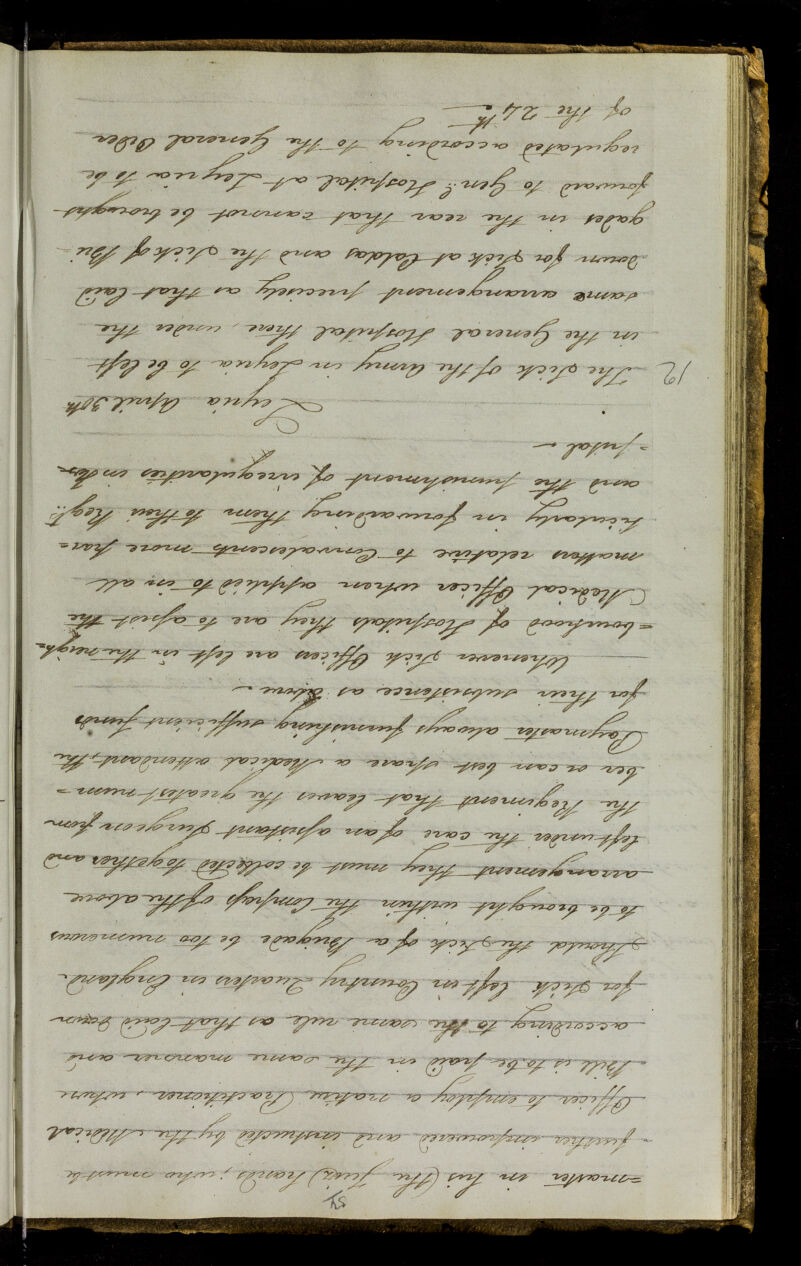 57
=master in his (the Juiz) hands; who must be
further impowered and instructed by the Medical
Officer to employ a native Practitioner, whose
Bill is to be paid in the same manner and
according to the same rule as that laid down
for Sick left in Country Quarters in England.
Should the Sick of a Brigade be too numerous
to be brought within the Compass of the above
arrangement they must be collected together and
left under the care of an assistant Surgeon from
the Regiment that leaves the greatest num=
ber or can best spare a Medical attendant, the
Paymaster always furnishing sufficient funds
for their subsistence as above.—
Whenever Sick Officers are left in the neigh=
=bourhood of Hospitals they are to assist the
Medical Officer when applied to in all
matters relative to Convalescents more par=
ticularly in forwarding them to their Regts.
and the punishment of irregularities in Hos=
=pital.—
Leyria April 30th
12 The Sick of the Army in Leyria to be left
in the General Hospital there, under the
same arrangement precisely as that laid
down for Sick at Caldas and the Sick of Bri=
gades in the rear that cannot be brought
forward to Genl. Hospital at Leyria to be
regulated according to the General Order
of the 24th.—